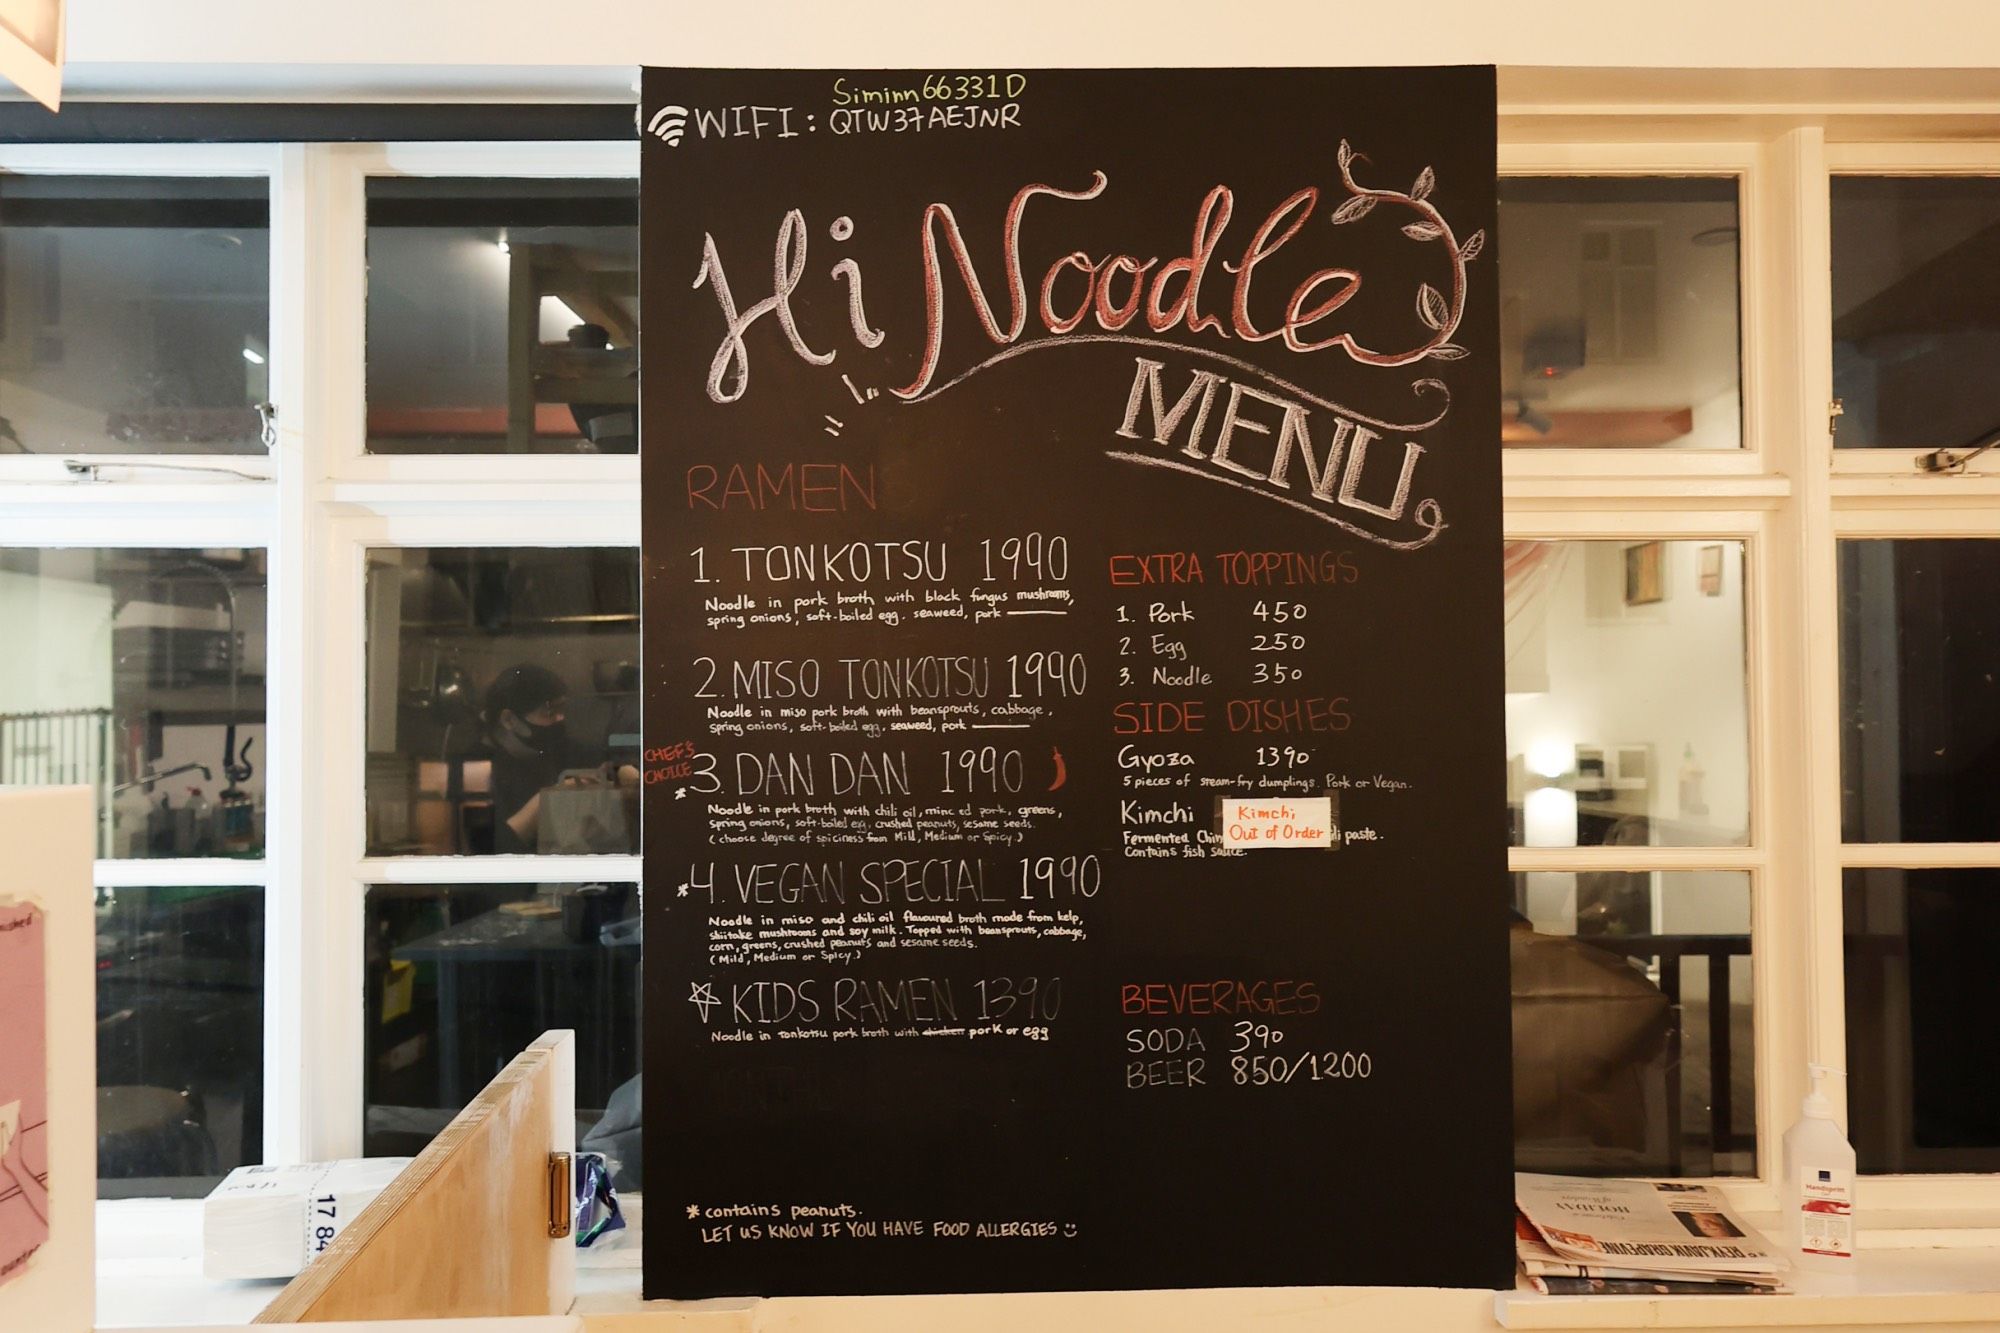 Siminn66331D
WIFI: QTW37AEJNR
Hi Noodle
MENU
RAMEN
1. TONKOTSU 1990
Noodle in pork broth with black fungus mushrooms,
spring onions, soft-boiled egg. seaweed, pork
2. MISO TONKOTSU 1990
Noodle in miso pork broth with beansprouts, cabbage,
spring onions, soft-boiled egg, seaweed, pork
CHEF'S
CHOICE
*3. DAN DAN 1990
Noodle in pork broth with chili oil, minced pork, greens,
spring onions, soft-boiled egg, crushed peanuts, sesame seeds.
(choose degree of spiciness from Mild, Medium or Spicy.)
*4. VEGAN SPECIAL 1990
Noodle in miso and chili oil flavoured broth made from kelp,
shiitake mushrooms and soy milk. Topped with beansprouts, cabbage,
corn, greens, crushed peanuts and sesame seeds.
(Mild, Medium or Spicy.)
KIDS RAMEN 1390
Noodle in tonkotsu pork broth with chicken pork or egg
*contains peanuts.
LET US KNOW IF YOU HAVE FOOD ALLERGIES
EXTRA TOPPINGS
1. Pork 450
2. Egg 250
3. Noodle 350
SIDE DISHES
Gyoza 1390
5 pieces of steam-fry dumplings. Pork or Vegan.
Kimchi
Kimchi,
Out of Order
Fermented Chin li paste.
Contains fish sauce.
BEVERAGES
SODA 390
BEER 850/1200
17 84
HOLIDAY
REYKJAVIK GRAPEVINE
Handsprit